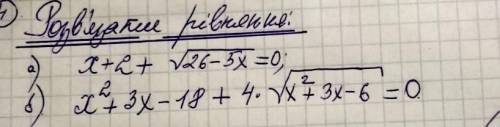 1) Розв'язати рівняння:
а) x+2+√26-5x=0;
б) x²+3x-18+4·√x²+3x-6=0